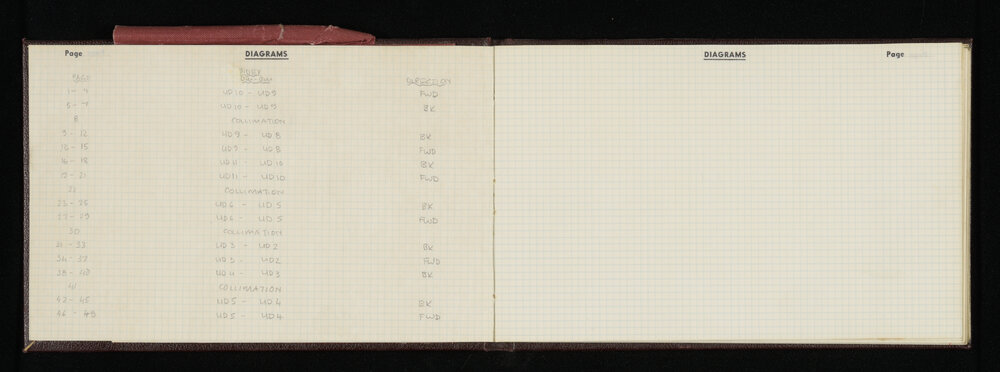 Page DIAGRAMS
INDEX
PAGE DIRECTION
1 - 4 UD10 - UD9 FWD
5 - 7 UD10 - UD9 BK
8 COLLIMATION
9 - 12 UD9 - UD8 BK
- 15 UD9 - UD8 FWD
16 - 18 UD11 - UD10 BK
- 21 UD11 - UD10 FWD
22 COLLIMATION
23 - 26 UD6 - UD5 BK
27 - 29 UD6 - UD5 FWD
30 COLLIMATION
31 - 33 UD3 - UD2 BK
34 - 37 UD3 - UD2 FWD
38 - 40 UD4 - UD3 BK
41 COLLIMATION
42 - 45 UD5 - UD4 BK
46 - 49 UD5 - UD4 FWD
DIAGRAMS Page